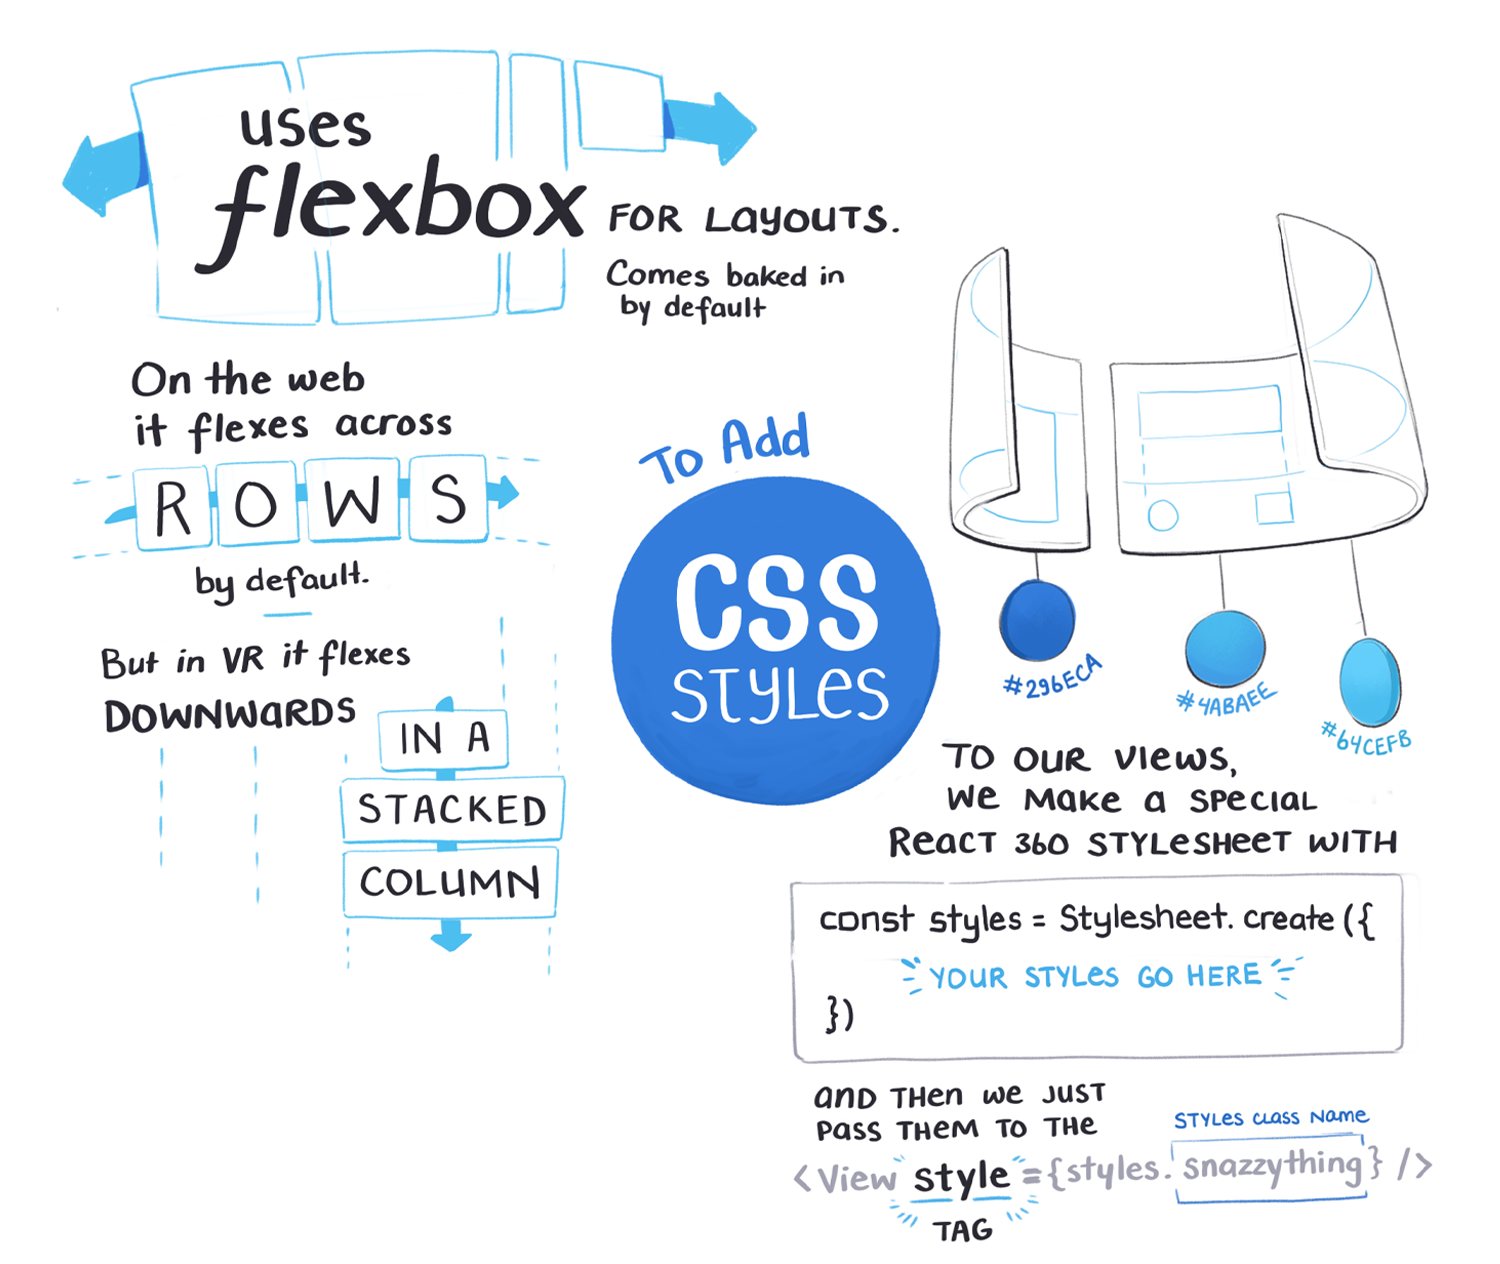 uses
flexbox FOR LAYOUTS.
Comes baked in
by default
On the web
it flexes across
ROWS
by default.
But in VR it flexes
DOWNWARDS
IN A
STACKED
COLUMN
To Add
CSS
STYLES
#296ECA
#4ABAEE
#64CEFB
TO OUR VIEWS,
WE MAKE A SPECIAL
REACT 360 STYLESHEET WITH
const styles = Stylesheet.create({
YOUR STYLES GO HERE
})
AND THEN WE JUST
PASS THEM TO THE
STYLES CLASS NAME
<View style={styles.snazzything} />
TAG